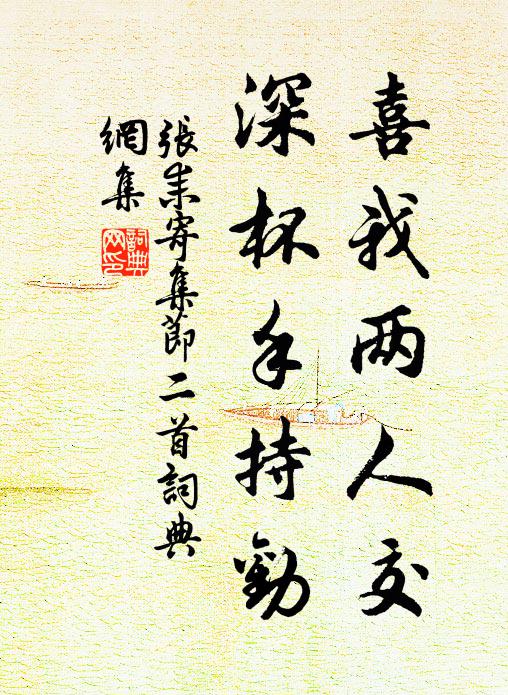 喜我两人交
深杯手持勸
張耒寄集節二首詞典
網集
詞典网印